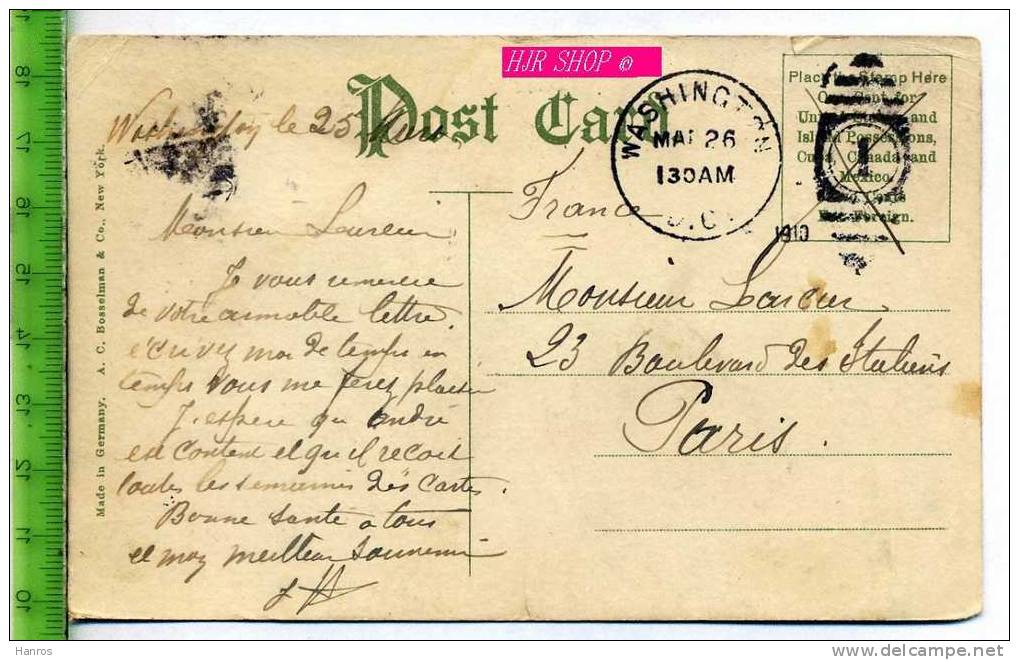 HJR SHOP ©
Post Card
Place the Stamp Here
One Cent for
United States and
Island Possessions,
Cuba, Canada and
Mexico.
For Foreign.
WASHINGTON
MAR 26
130AM
D.C.
1910
1
le 25 Mars
Monsieur Larcier
Je vous remercie
de votre aimable lettre.
écrivez moi de temps en
temps vous me ferez plaisir
J'espère que andré
est content et qu'il reçoit
toutes les semaines des cartes.
Bonne santé a tous
et mon meilleur souvenir
France
Monsieur
23 Boulevard des Italiens
Paris.
Made in Germany. A. C. Bosselman & Co., New York.
18
17
16
15
14
13
12
11
10
Hanros
www.delcampe.net